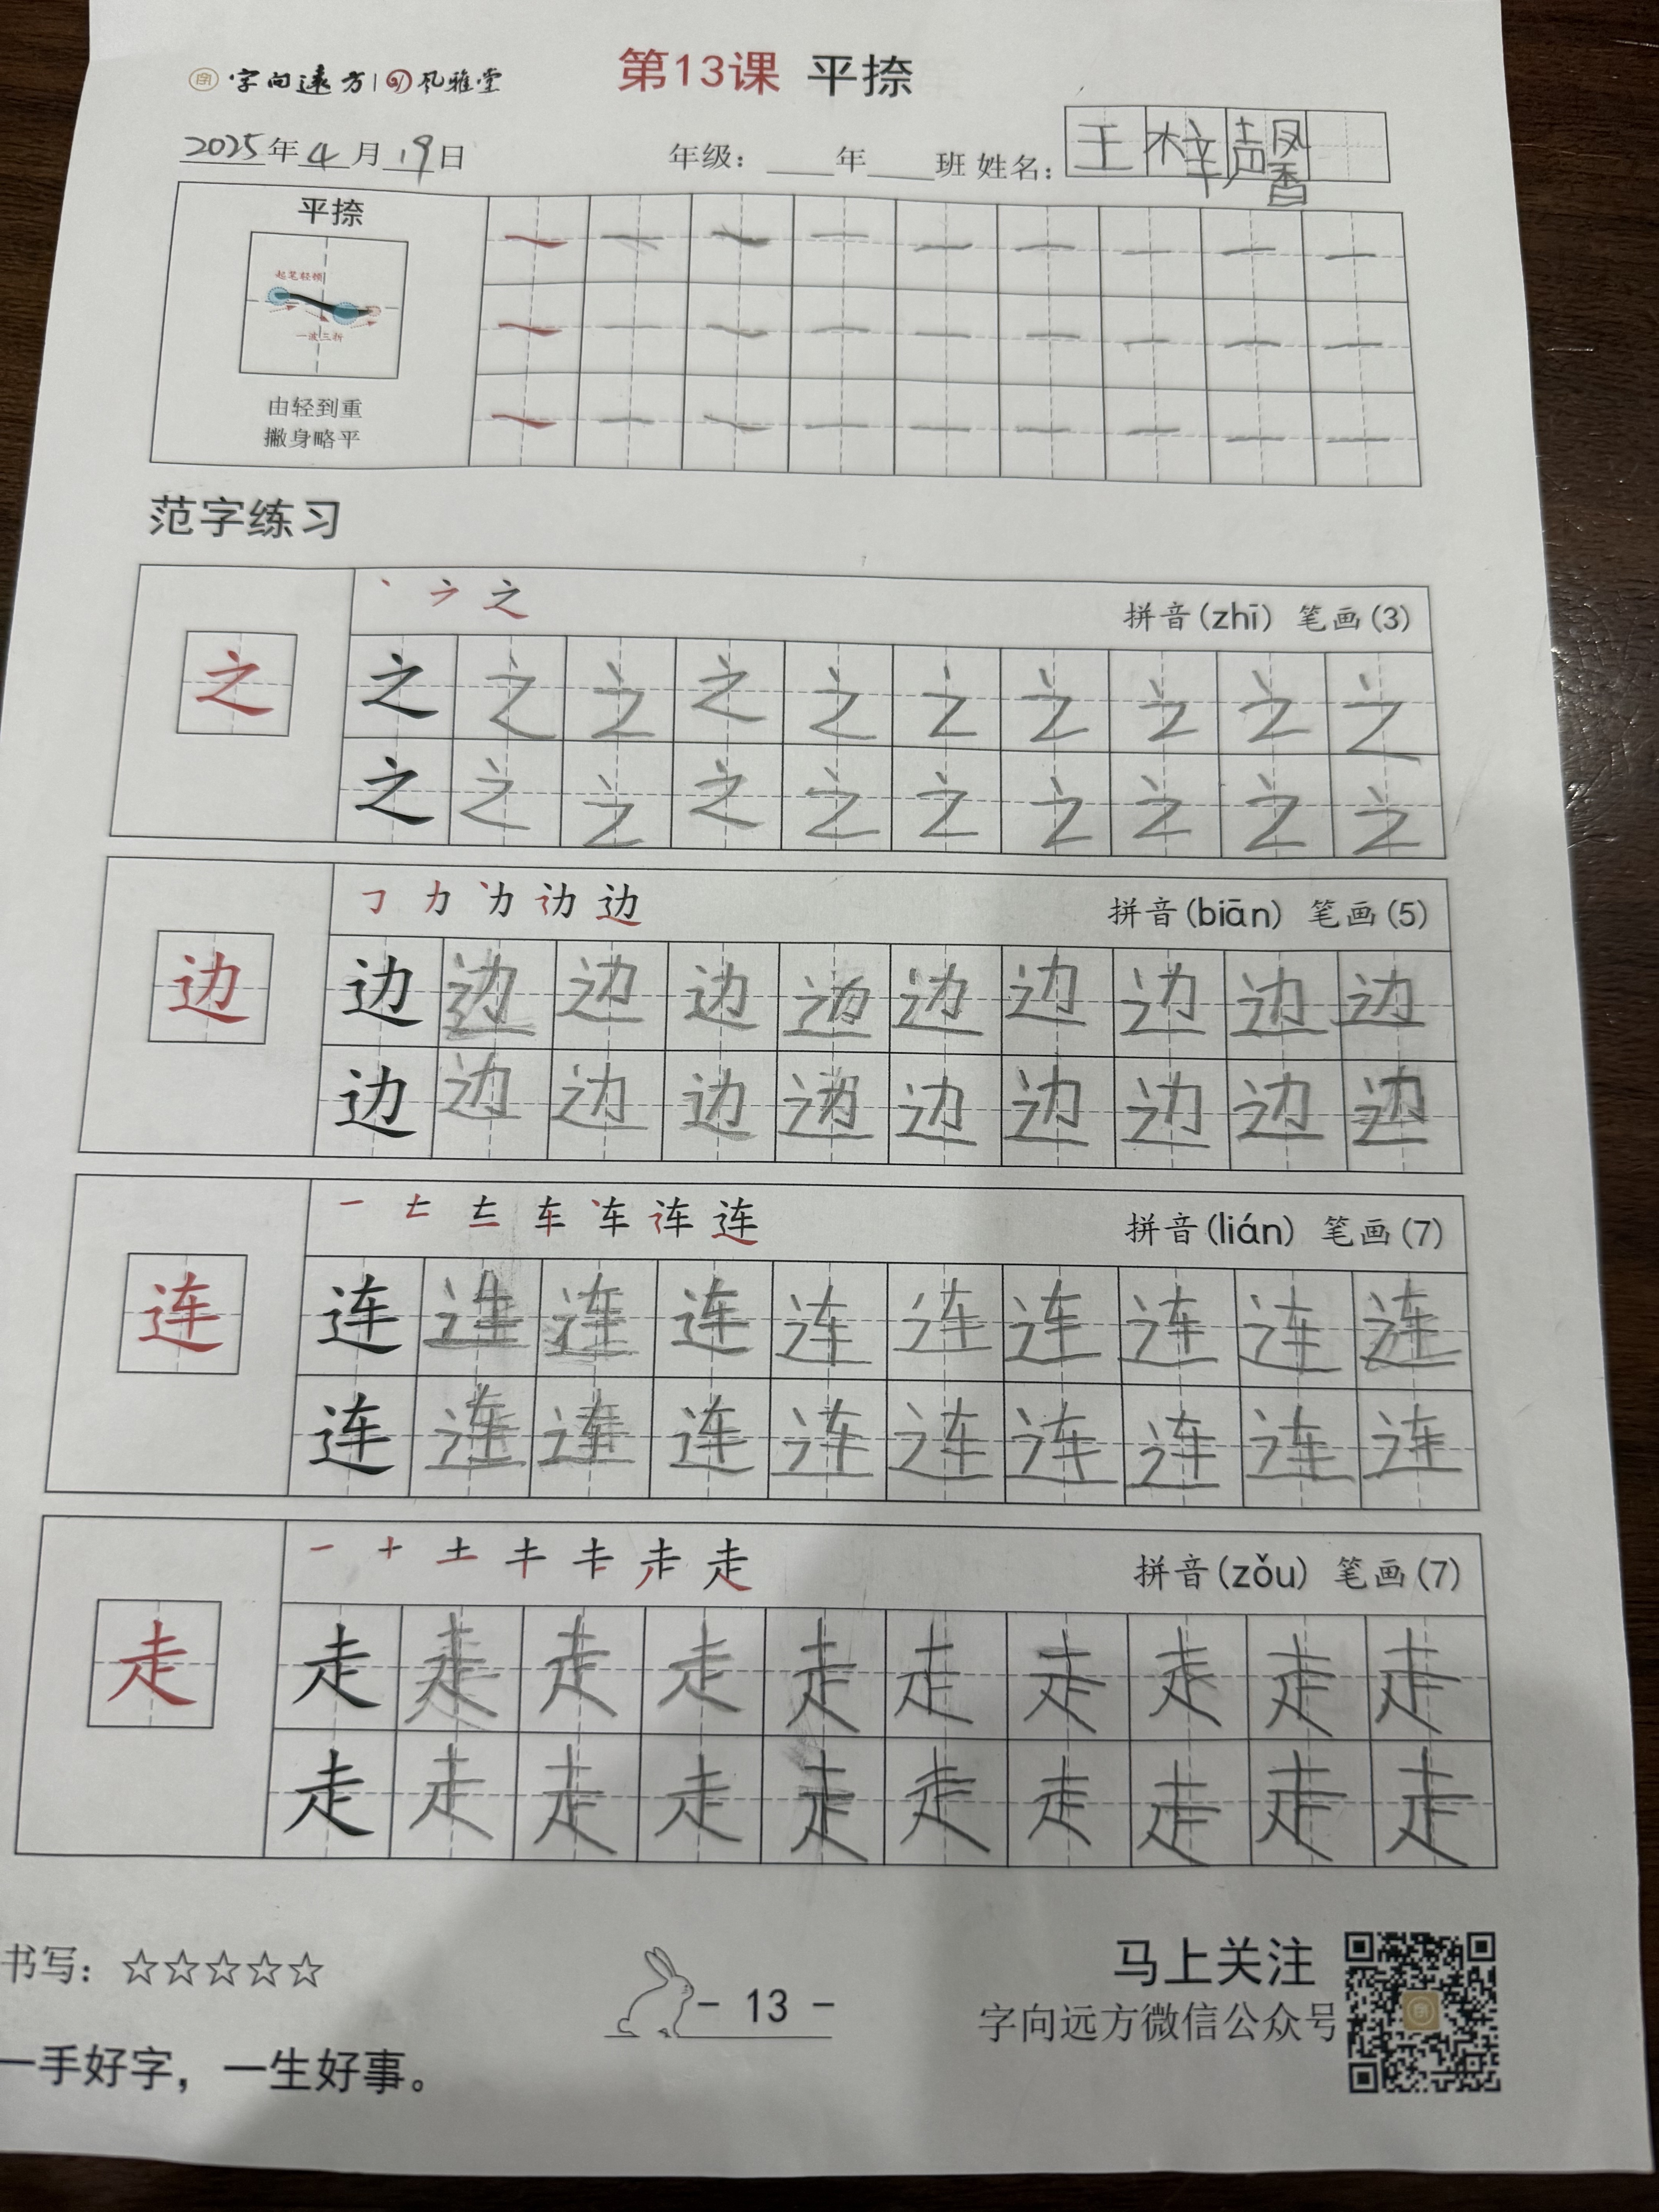 字向远方 风雅堂
第13课 平捺
2025年4月19日 年级：____年____班 姓名：王梓馨
平捺
起笔轻顿
一波三折
由轻到重
撇身略平
范字练习
之 拼音(zhī) 笔画(3)
之
之 之 之 之 之 之 之 之 之 之
之 之 之 之 之 之 之 之 之 之
边 拼音(biān) 笔画(5)
边
边 边 边 边 边 边 边 边 边 边
边 边 边 边 边 边 边 边 边 边
一 车 连 拼音(lián) 笔画(7)
连
连 连 连 连 连 连 连 连 连 连
连 连 连 连 连 连 连 连 连 连
一 十 土 走 拼音(zǒu) 笔画(7)
走
走 走 走 走 走 走 走 走 走 走
走 走 走 走 走 走 走 走 走 走
书写：☆☆☆☆☆
- 13 -
马上关注
字向远方微信公众号
一手好字，一生好事。